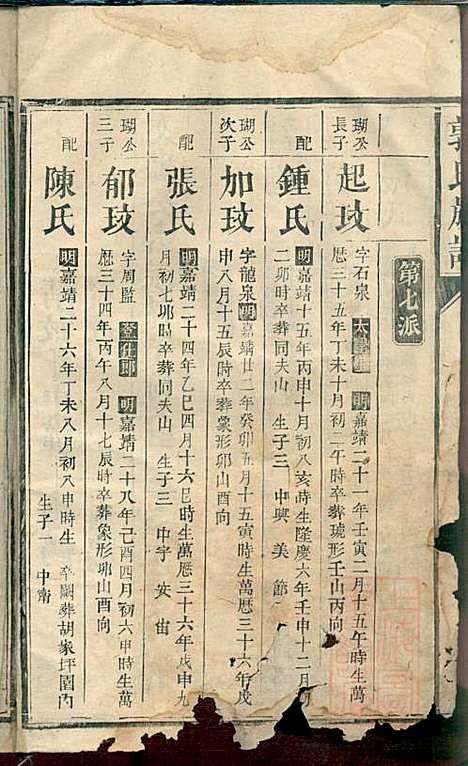 氏族譜
第七派
瑚公長子
起玟
字石泉
明嘉靖二十一年壬寅二月十五午時生萬
歷三十五年丁未十月初二午時卒葬琥形壬山丙向
配
鍾氏
明嘉靖十五年丙申十月初八亥時生隆慶六年壬申十二月初
二卯時卒葬同夫山 生子三 中興 美 節
瑚公次子
加玟
字龍泉明嘉靖廿二年癸卯五月十五寅時生萬歷三十六年戊
申八月十五辰時卒葬象形卯山酉向
配
張氏
明嘉靖二十四年乙巳四月十六巳時生萬歷三十六年戊申九
月初七卯時卒葬同夫山 生子三 中宇 安 宙
瑚公三子
郁玟
字周監 登仕郎 明嘉靖二十八年己酉四月初六申時生萬
歷三十四年丙午八月十七辰時卒葬象形卯山酉向
配
陳氏
明嘉靖二十六年丁未八月初八申時生 卒闕葬胡家坪園內
生子一 中南